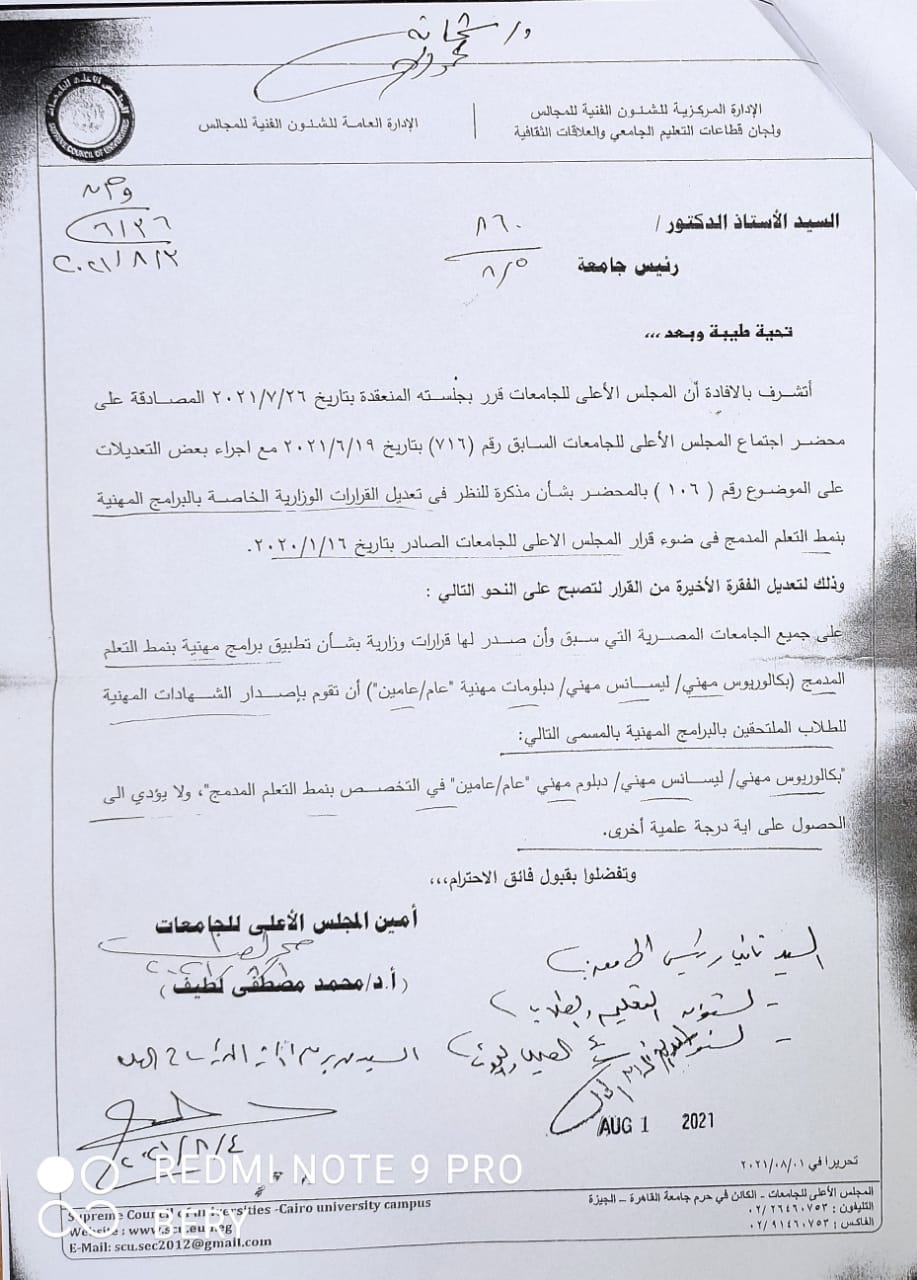 د/ شحاته
محمود
الإدارة المركزية للشئون الفنية للمجالس
ولجان قطاعات التعليم الجامعي والعلاقات الثقافية
الإدارة العامة للشئون الفنية للمجالس
المجلس الأعلى للجامعات
SUPREME COUNCIL OF UNIVERSITIES
٦١٣٦
٢٠٢١/٨/٣
السيد الأستاذ الدكتور /
٨٦٠
٨/٥
رئيس جامعة
تحية طيبة وبعد ،،،
أتشرف بالافادة أن المجلس الأعلى للجامعات قرر بجلسته المنعقدة بتاريخ ٢٠٢١/٧/٢٦ المصادقة على
محضر اجتماع المجلس الأعلى للجامعات السابق رقم (٧١٦) بتاريخ ٢٠٢١/٦/١٩ مع اجراء بعض التعديلات
على الموضوع رقم ( ١٠٦ ) بالمحضر بشأن مذكرة للنظر فى تعديل القرارات الوزارية الخاصة بالبرامج المهنية
بنمط التعلم المدمج فى ضوء قرار المجلس الاعلى للجامعات الصادر بتاريخ ٢٠٢٠/١/١٦.
وذلك لتعديل الفقرة الأخيرة من القرار لتصبح على النحو التالي :
على جميع الجامعات المصرية التي سبق وأن صدر لها قرارات وزارية بشأن تطبيق برامج مهنية بنمط التعلم
المدمج (بكالوريوس مهني/ ليسانس مهني/ دبلومات مهنية "عام/عامين") أن تقوم بإصدار الشهادات المهنية
للطلاب الملتحقين بالبرامج المهنية بالمسمى التالي:
"بكالوريوس مهني/ ليسانس مهني/ دبلوم مهني "عام/عامين" في التخصص بنمط التعلم المدمج"، ولا يؤدي الى
الحصول على اية درجة علمية أخرى.
وتفضلوا بقبول فائق الاحترام،،،
أمين المجلس الأعلى للجامعات
(أ.د/محمد مصطفى لطيف)
السيد نائب رئيس الجامعة
- لشئون التعليم والطلاب
٢٠٢١/٨/٤
AUG 1 2021
تحريرا في ٢٠٢١/٠٨/٠١
المجلس الأعلى للجامعات - الكائن في حرم جامعة القاهرة – الجيزة
التليفون : ٠٢/٢٦٤٦٠٧٥٣
الفاكس : ٠٢/٩١٤٦٠٧٥٣
Supreme Council of Universities -Cairo university campus
Website : www.scu.eun.eg
E-Mail: scu.sec2012@gmail.com
REDMI NOTE 9 PRO
BERY